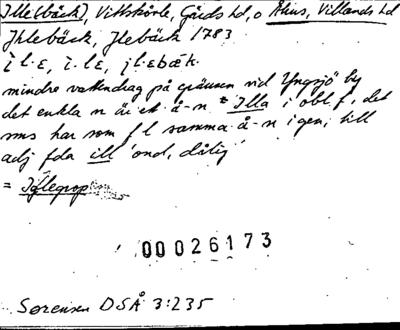 Ille(bäck), Vittskövle, Gärds hd, o Åhus, Villands hd
Jhlebäck, Jlebäck 1783
mindre vattendrag på gränsen vid Yngsjö by
det enkla n är ett å-n * Illa i obl. f, det
sms har som f l samma å-n i gen, till
adj fda ill 'ond, dålig'
=
00026173
Sørensen DSÅ 3:235